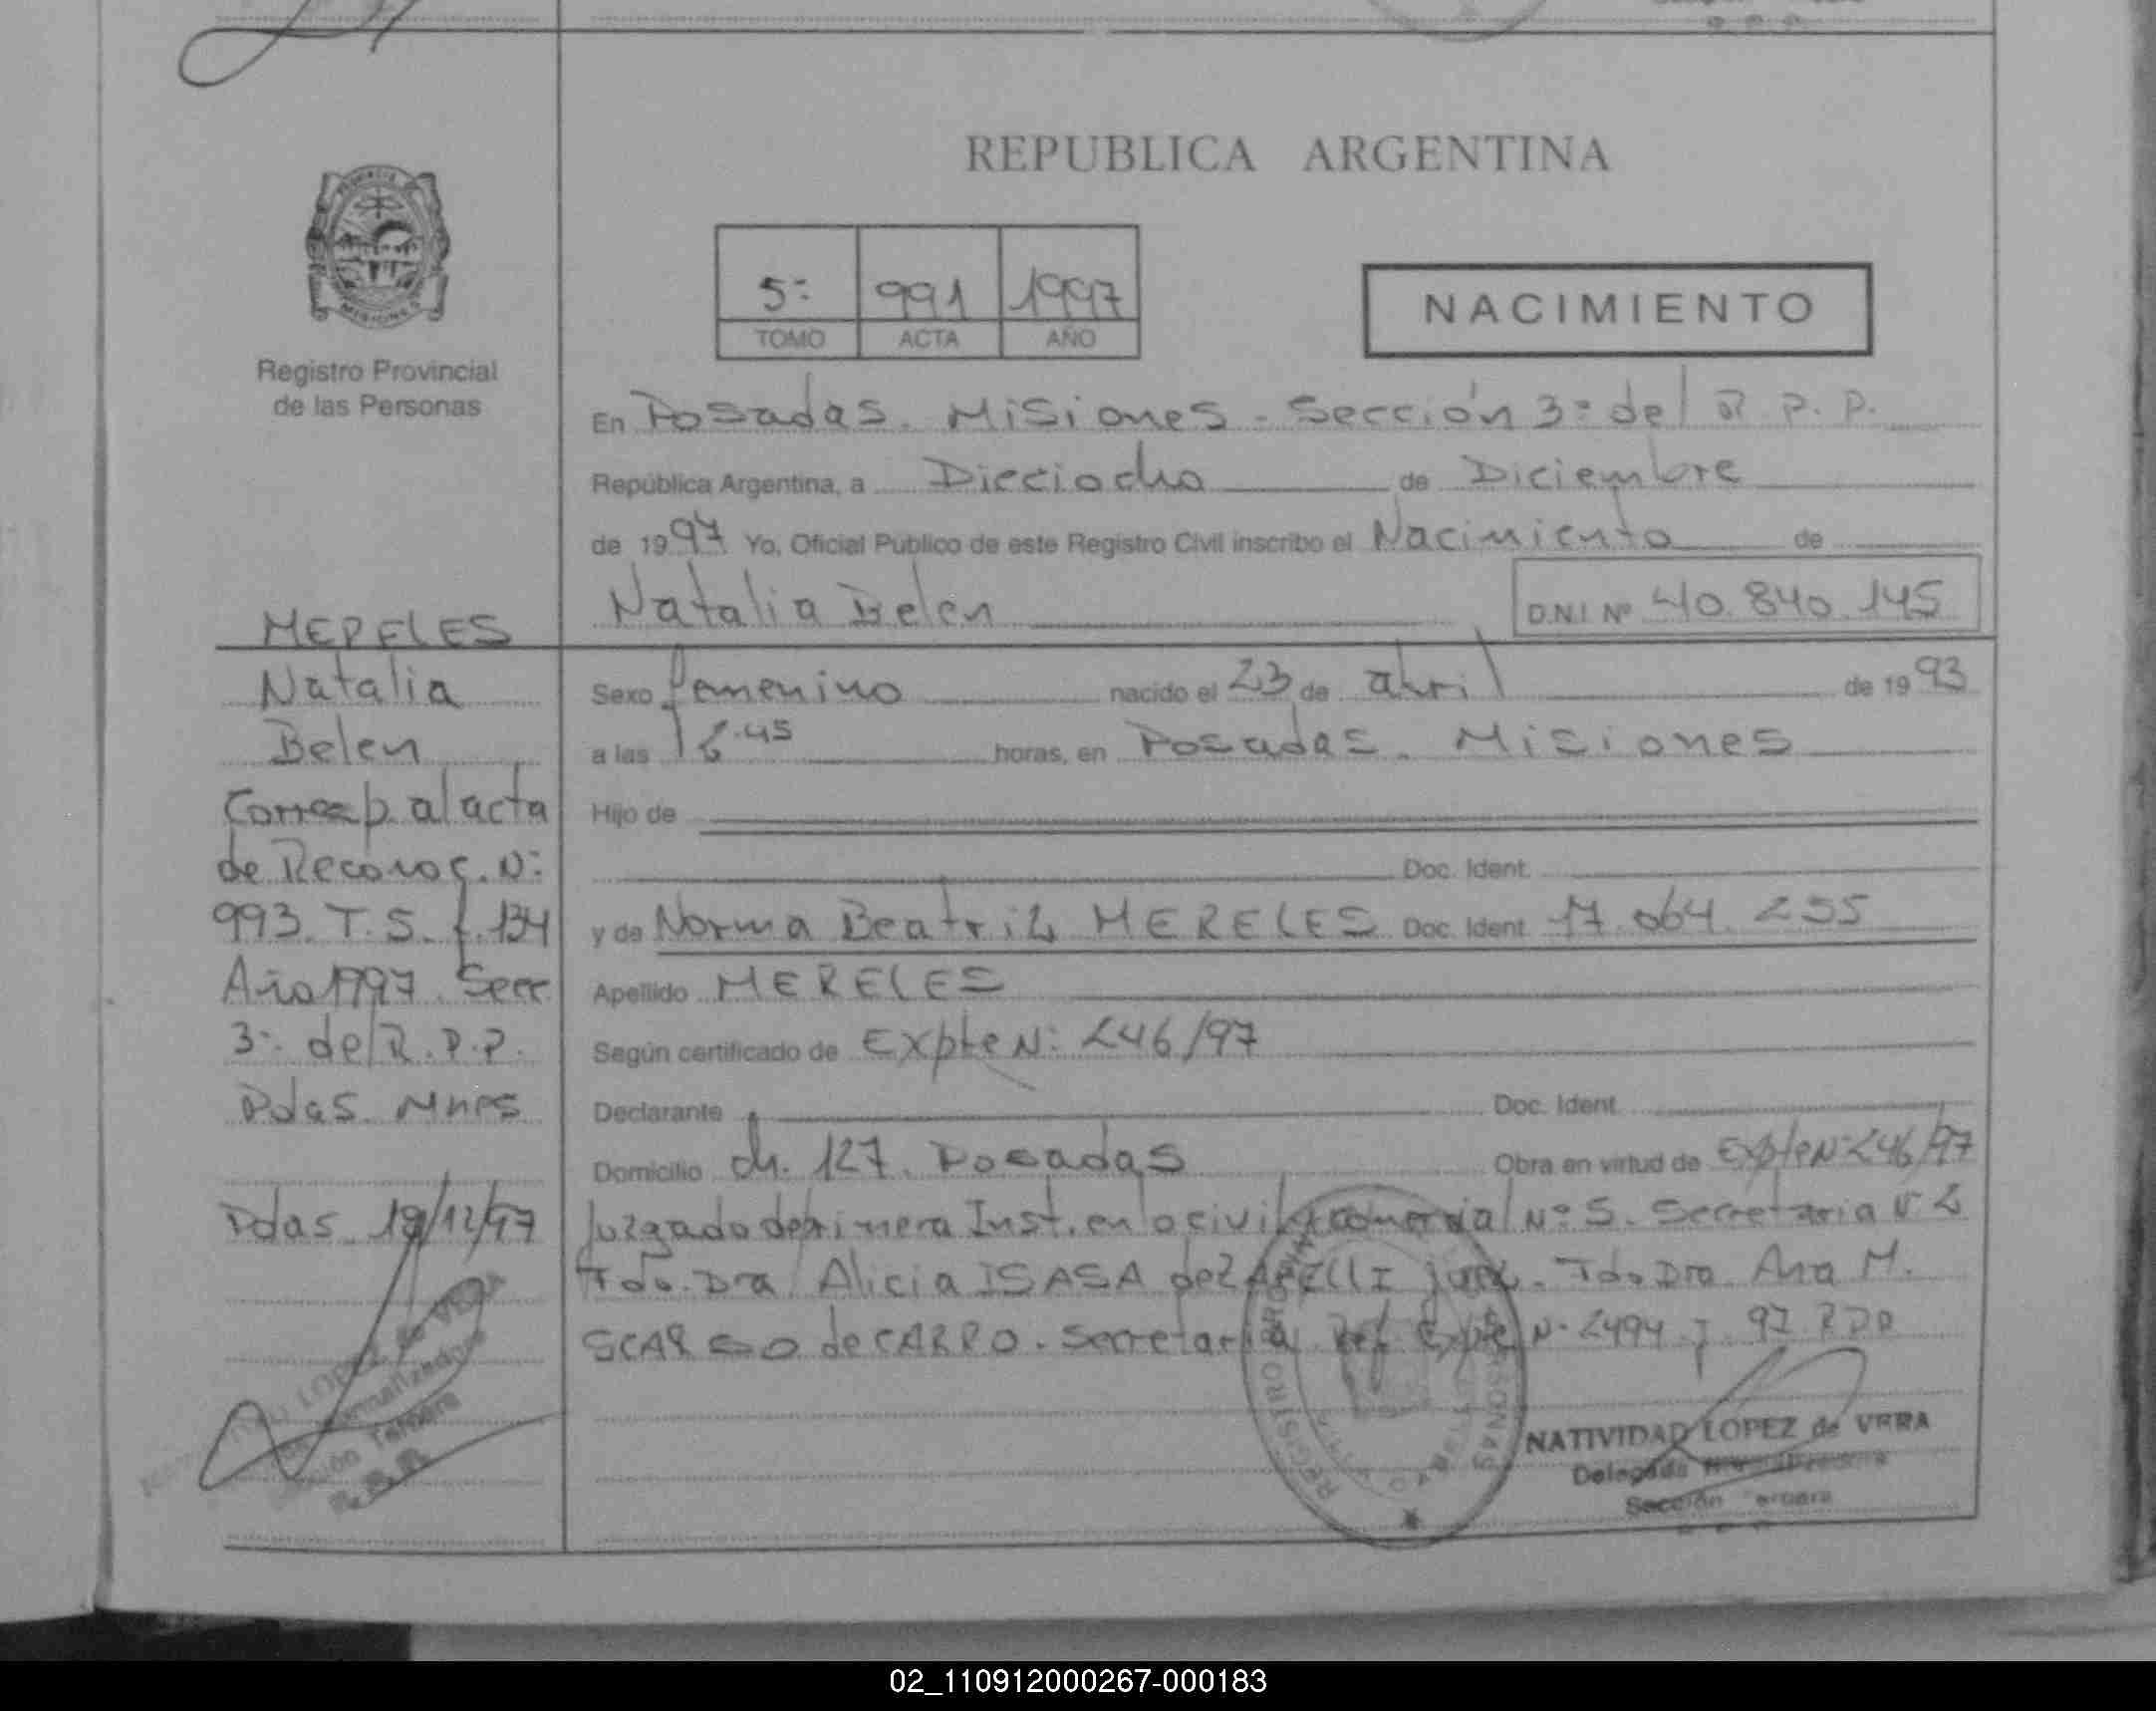 REPUBLICA ARGENTINA
5º 991 1997
TOMO ACTA AÑO
NACIMIENTO
Registro Provincial
de las Personas
En Posadas. Misiones - Sección 3º del R.P.P.
República Argentina, a Dieciocho de Diciembre
de 1997 Yo, Oficial Público de este Registro Civil inscribo el Nacimiento de
Natalia Belen D.N.I. Nº 40.840.145
Sexo femenino nacido el 23 de abril de 1993
a las 16.45 horas, en Posadas. Misiones
Hijo de
Doc. Ident.
y de Norma Beatriz MERELES Doc. Ident. 17.064.255
Apellido MERELES
Según certificado de Expte Nº 246/97
Declarante Doc. Ident.
Domicilio ch. 127. Posadas Obra en virtud de Expte Nº 246/97
Juzgado de primera Inst. en lo civil y comercial Nº 5. Secretaria Nº 2
Fdo. Dra Alicia ISASA de juez. Fdo Dra Ana M.
de CARRO. Secretaria Ref. Expte Nº 2494 97 RPP
MERELES
Natalia
Belen
Corresp. al acta
de Reconoc. Nº
993. T. 5. f. 134
Año 1997. Secc
3º del R.P.P.
Pdas. Mnes
Pdas. 18/12/97
LOPEZ de VERA
Sección Tercera
REGISTRO PERSONAS
NATIVIDAD LOPEZ de VERA
Delegada Normalizadora
Sección Tercera
02_110912000267-000183